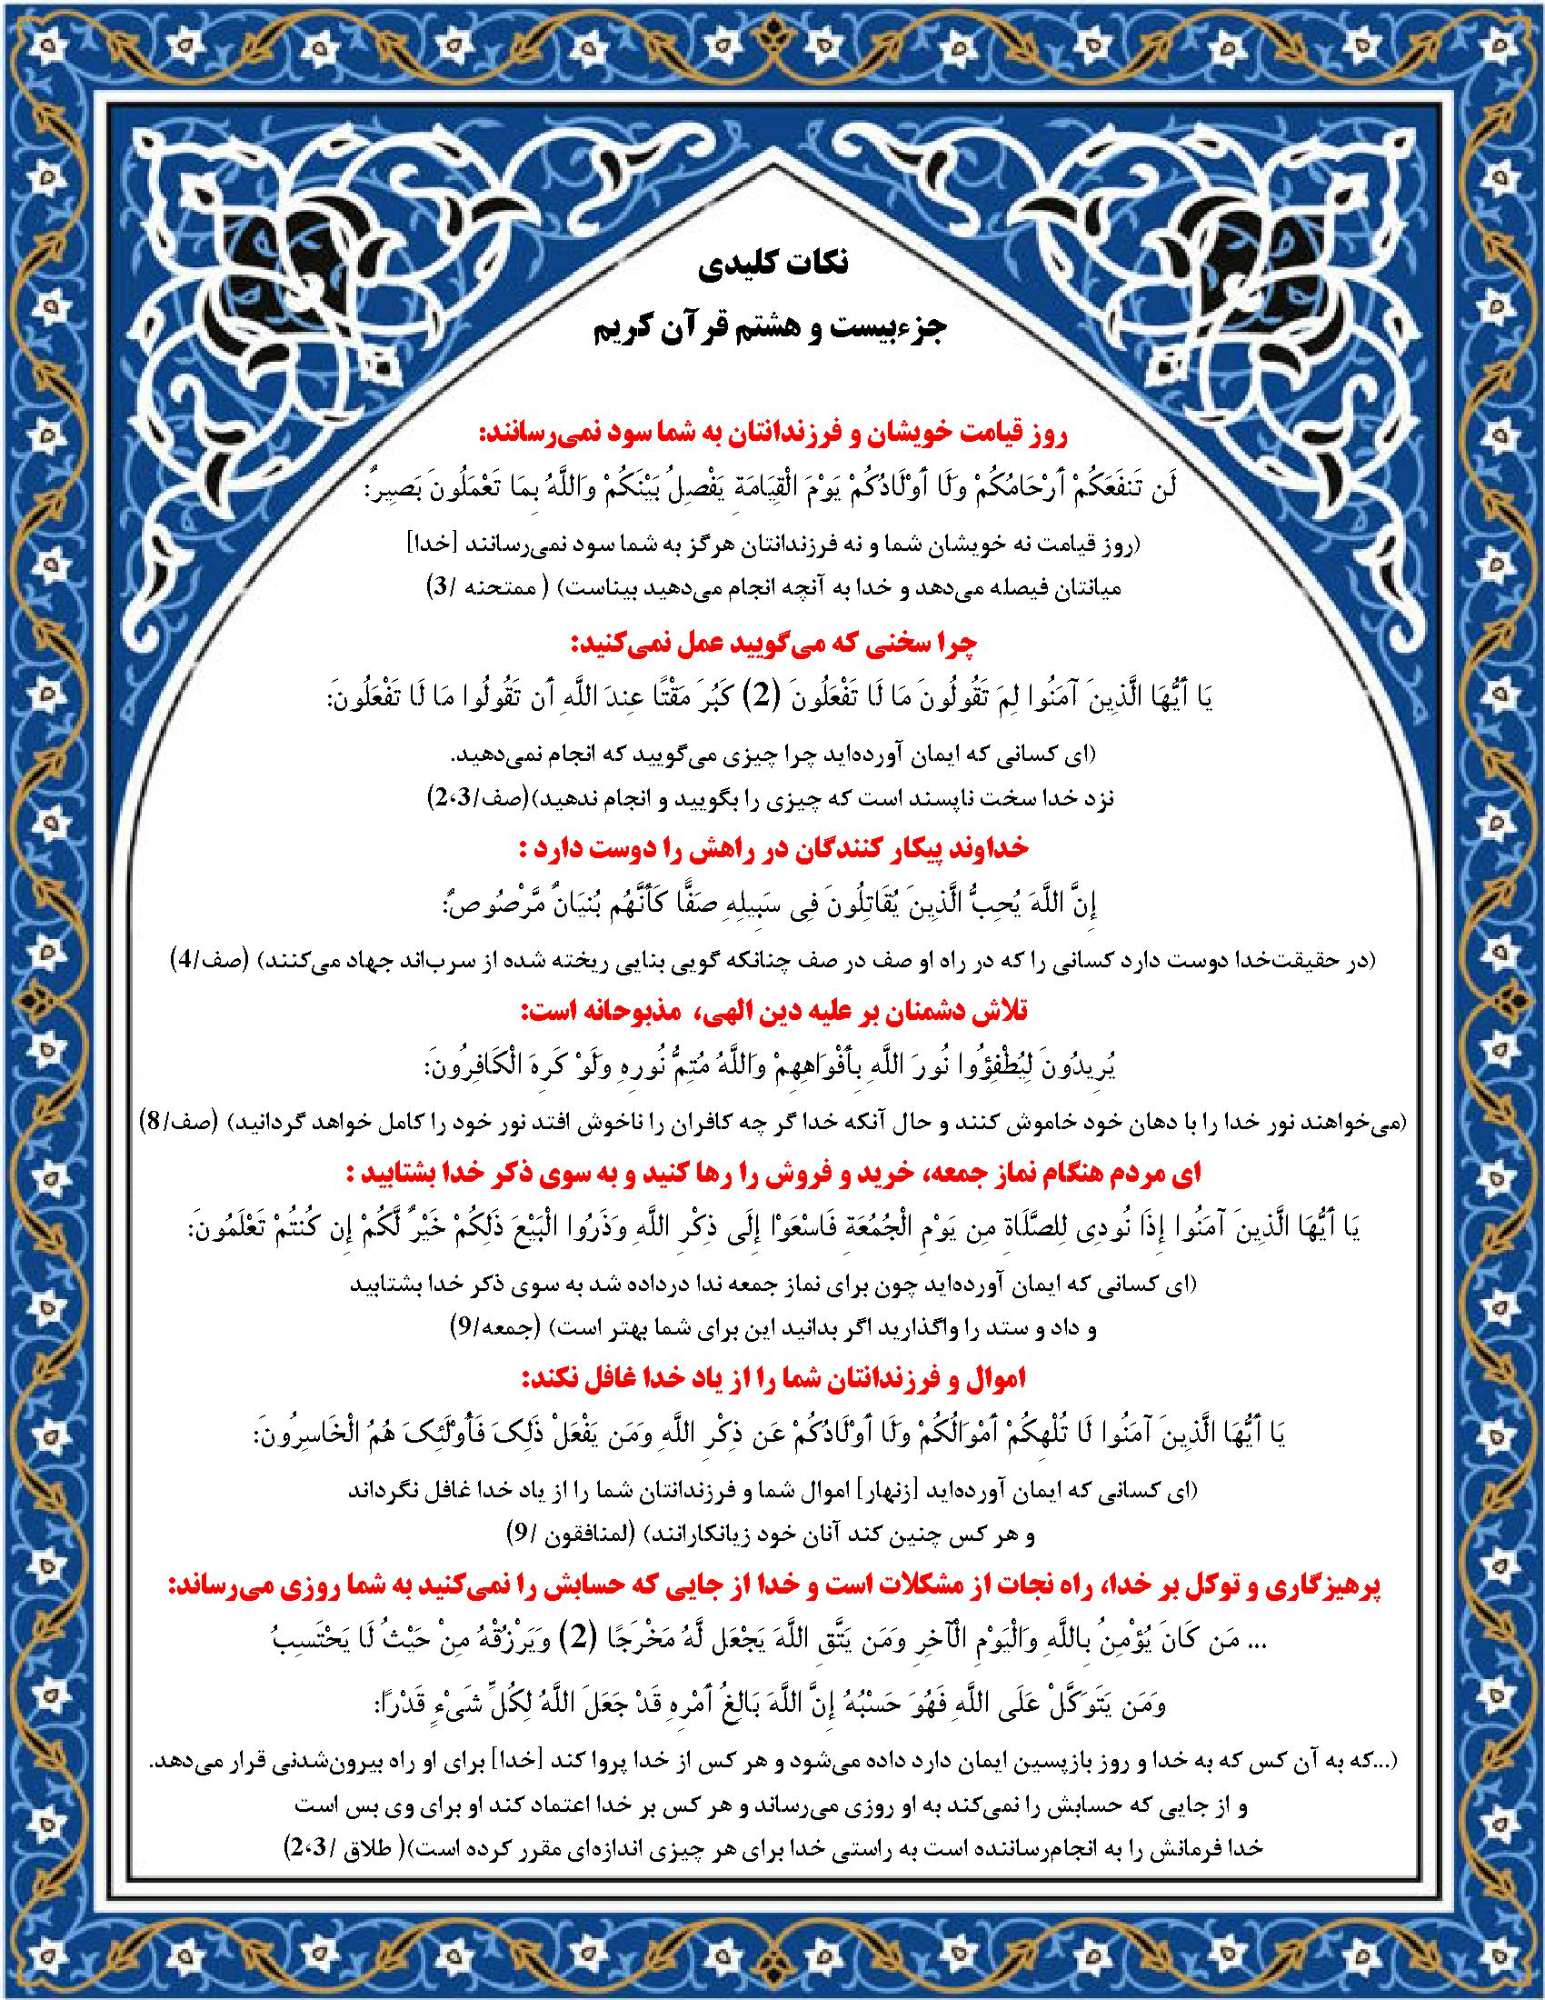 نکات کلیدی
جزء‌بیست و هشتم قرآن کریم
روز قیامت خویشان و فرزندانتان به شما سود نمی‌رسانند:
لَن تَنفَعَكُمْ أَرْحَامُكُمْ وَلَا أَوْلَادُكُمْ يَوْمَ الْقِيَامَةِ يَفْصِلُ بَيْنَكُمْ وَاللَّهُ بِمَا تَعْمَلُونَ بَصِيرٌ:
(روز قیامت نه خویشان شما و نه فرزندانتان هرگز به شما سود نمی‌رسانند [خدا]
میانتان فیصله می‌دهد و خدا به آنچه انجام می‌دهید بیناست) ( ممتحنه /3)
چرا سخنی که می‌گویید عمل نمی‌کنید:
يَا أَيُّهَا الَّذِينَ آمَنُوا لِمَ تَقُولُونَ مَا لَا تَفْعَلُونَ (2) كَبُرَ مَقْتًا عِندَ اللَّهِ أَن تَقُولُوا مَا لَا تَفْعَلُونَ:
(ای کسانی که ایمان آورده‌اید چرا چیزی می‌گویید که انجام نمی‌دهید.
نزد خدا سخت ناپسند است که چیزی را بگویید و انجام ندهید)(صف/2،3)
خداوند پیکار کنندگان در راهش را دوست دارد :
إِنَّ اللَّهَ يُحِبُّ الَّذِينَ يُقَاتِلُونَ فِي سَبِيلِهِ صَفًّا كَأَنَّهُم بُنْيَانٌ مَّرْصُوصٌ:
(در حقیقت‌خدا دوست دارد کسانی را که در راه او صف در صف چنانکه گویی بنایی ریخته شده از سرب‌اند جهاد می‌کنند) (صف/4)
تلاش دشمنان بر علیه دین الهی، مذبوحانه است:
يُرِيدُونَ لِيُطْفِؤُوا نُورَ اللَّهِ بِأَفْوَاهِهِمْ وَاللَّهُ مُتِمُّ نُورِهِ وَلَوْ كَرِهَ الْكَافِرُونَ:
(می‌خواهند نور خدا را با دهان خود خاموش کنند و حال آنکه خدا گر چه کافران را ناخوش افتد نور خود را کامل خواهد گردانید) (صف/8)
ای مردم هنگام نماز جمعه، خرید و فروش را رها کنید و به سوی ذکر خدا بشتابید :
يَا أَيُّهَا الَّذِينَ آمَنُوا إِذَا نُودِي لِلصَّلَاةِ مِن يَوْمِ الْجُمُعَةِ فَاسْعَوْا إِلَى ذِكْرِ اللَّهِ وَذَرُوا الْبَيْعَ ذَلِكُمْ خَيْرٌ لَّكُمْ إِن كُنتُمْ تَعْلَمُونَ:
(ای کسانی که ایمان آورده‌اید چون برای نماز جمعه ندا درداده شد به سوی ذکر خدا بشتابید
و داد و ستد را واگذارید اگر بدانید این برای شما بهتر است) (جمعه/9)
اموال و فرزندانتان شما را از یاد خدا غافل نکند:
يَا أَيُّهَا الَّذِينَ آمَنُوا لَا تُلْهِكُمْ أَمْوَالُكُمْ وَلَا أَوْلَادُكُمْ عَن ذِكْرِ اللَّهِ وَمَن يَفْعَلْ ذَلِكَ فَأُوْلَئِكَ هُمُ الْخَاسِرُونَ:
(ای کسانی که ایمان آورده‌اید [زنهار] اموال شما و فرزندانتان شما را از یاد خدا غافل نگرداند
و هر کس چنین کند آنان خود زیانکارانند) (لمنافقون /9)
پرهیزگاری و توکل بر خدا، راه نجات از مشکلات است و خدا از جایی که حسابش را نمی‌کنید به شما روزی می‌رساند:
... مَن كَانَ يُؤْمِنُ بِاللَّهِ وَالْيَوْمِ الْآخِرِ وَمَن يَتَّقِ اللَّهَ يَجْعَل لَّهُ مَخْرَجًا (2) وَيَرْزُقْهُ مِنْ حَيْثُ لَا يَحْتَسِبُ
وَمَن يَتَوَكَّلْ عَلَى اللَّهِ فَهُوَ حَسْبُهُ إِنَّ اللَّهَ بَالِغُ أَمْرِهِ قَدْ جَعَلَ اللَّهُ لِكُلِّ شَيْءٍ قَدْرًا:
(...که به آن کس که به خدا و روز بازپسین ایمان دارد داده می‌شود و هر کس از خدا پروا کند [خدا] برای او راه بیرون‌شدنی قرار می‌دهد.
و از جایی که حسابش را نمی‌کند به او روزی می‌رساند و هر کس بر خدا اعتماد کند او برای وی بس است
خدا فرمانش را به انجام‌رساننده است به راستی خدا برای هر چیزی اندازه‌ای مقرر کرده است)( طلاق /2،3)